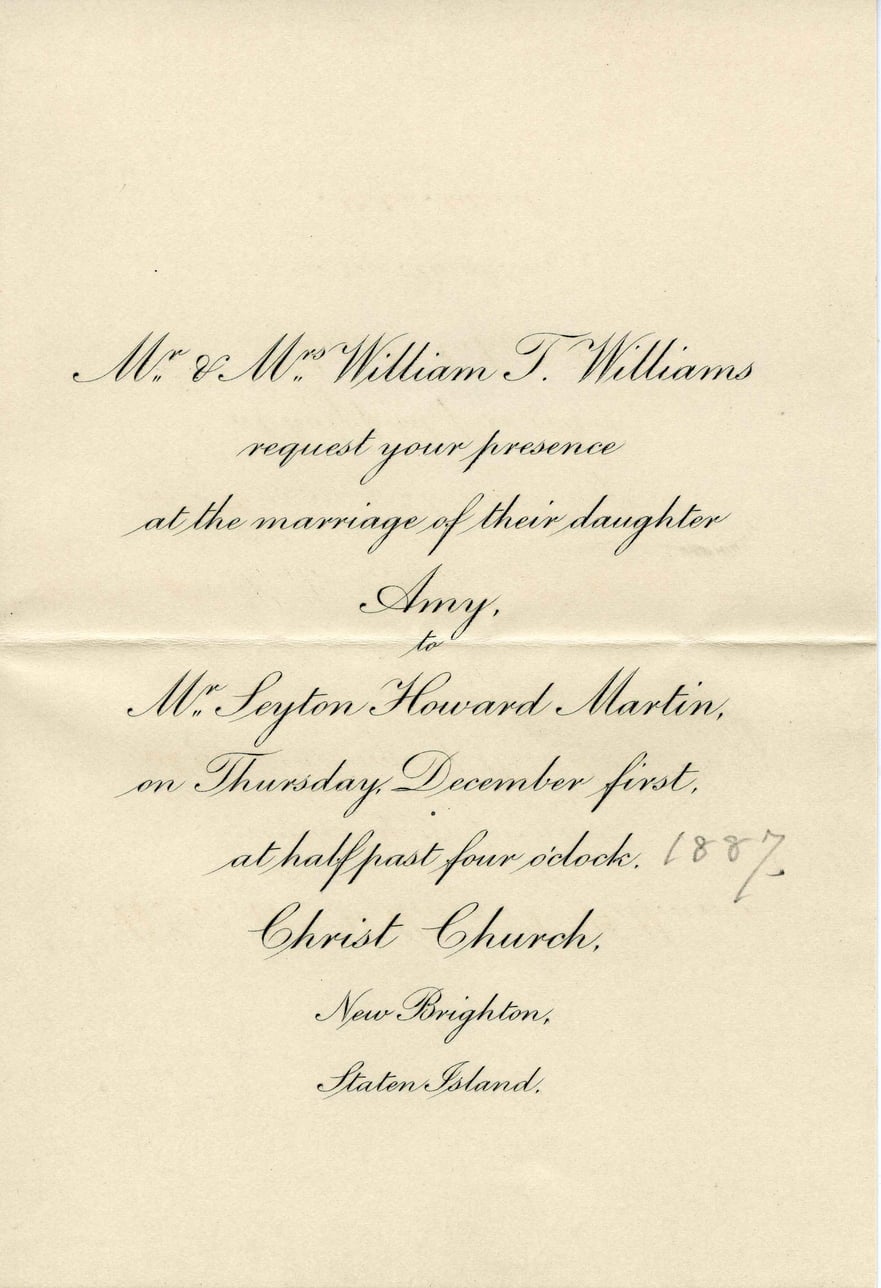 Mr. & Mrs. William T. Williams
request your presence
at the marriage of their daughter
Amy,
to
Mr. Seyton Howard Martin,
on Thursday, December first,
at half past four o'clock. 1887
Christ Church,
New Brighton,
Staten Island.